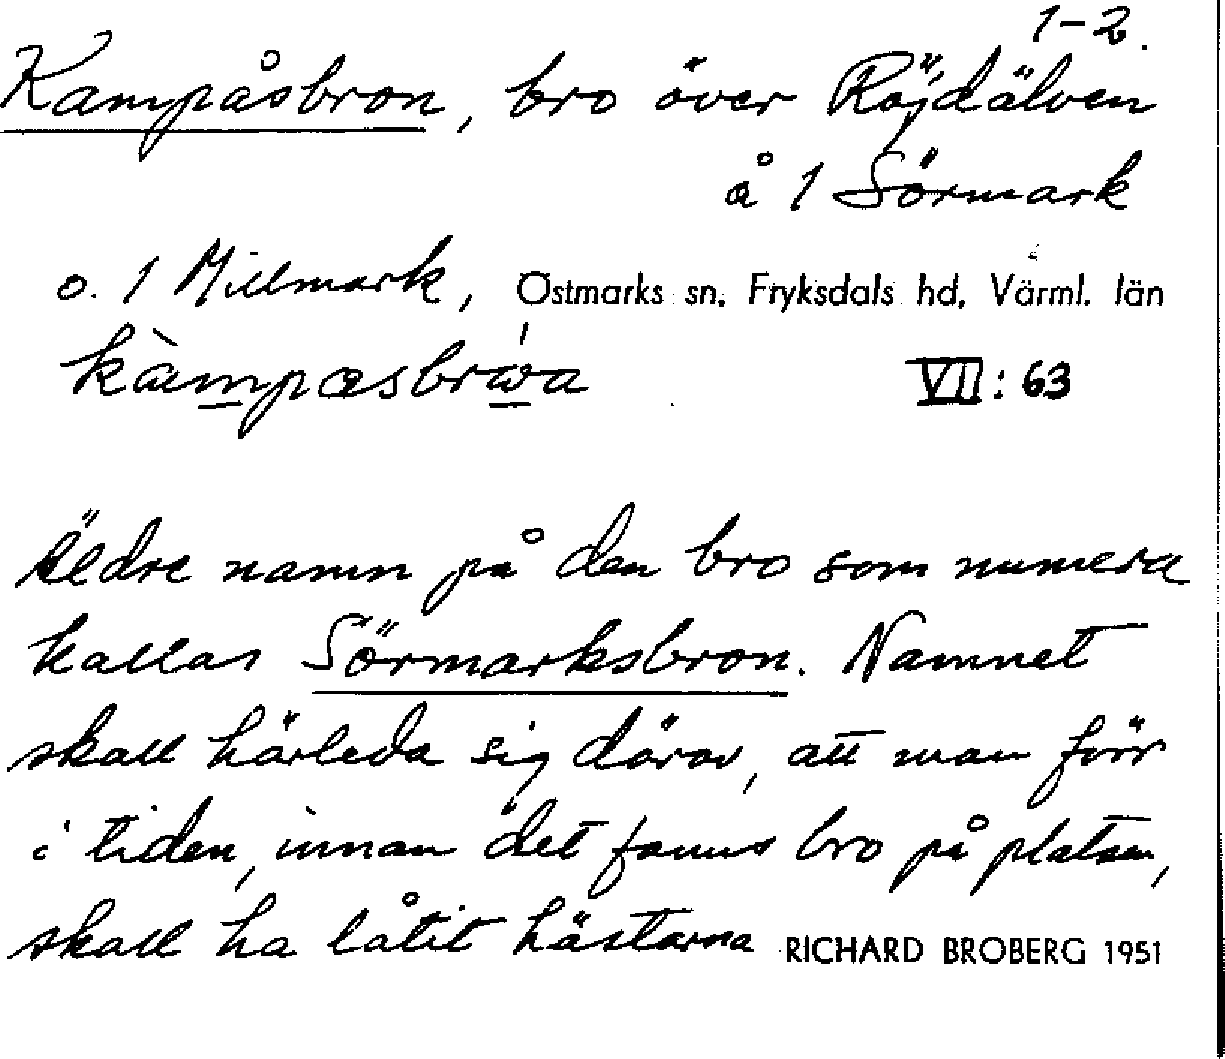 1-2.
Kampåsbron, bro över Röjdälven
å 1 Sörmark
o. 1 Millmark, Östmarks sn, Fryksdals hd, Värml. län
VII: 63
Äldre namn på den bro som numera
kallas Sörmarksbron. Namnet
skall härleda sig därav, att man förr
i tiden, innan det fanns bro på platsen,
skall ha låtit hästarna RICHARD BROBERG 1951